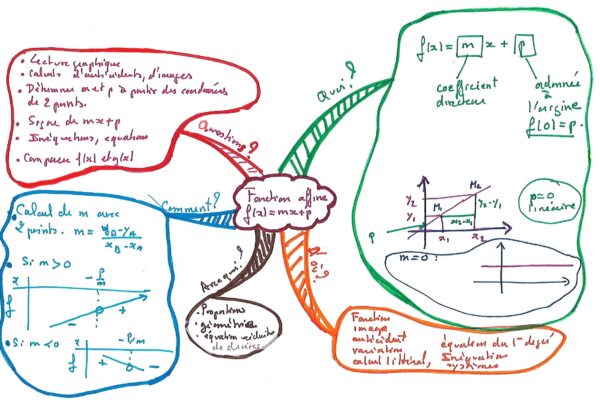 Fonction affine
f(x) = mx+p
Quoi?
f(x) = m x + p
coefficient
directeur
ordonnée
à
l'origine
f(0) = p.
y2
y1
M1
M2
y2-y1
x2-x1
x1
x2
p
p=0
linéaire
m=0:
Questions?
• Lecture graphique
• Calculs d'antécédents, d'images
• Déterminer m et p à partir des coordonnées
de 2 points.
• Signe de mx+p
• Inéquations, équations
• Comparer f(x) et g(x)
Comment?
• Calcul de m avec
2 points. m = yB-yA
xB-xA
• Si m>0
x
-p/m
f
-
0
+
• Si m<0
x
-p/m
f
+
0
-
Avec qui?
- Proportions
- géométrie
- équation réduite
de droites
Où?
Fonction
image
antécédent
variation
calcul littéral,
équation du 1er degré
Inéquation
systèmes